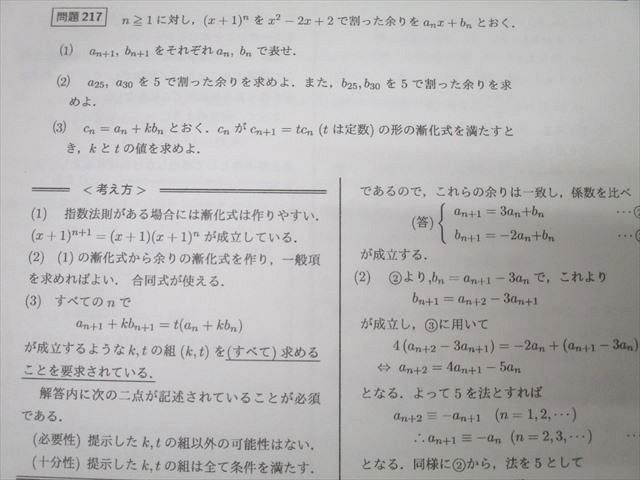 問題 217 n ≧ 1 に対し，(x + 1)ⁿ を x² − 2x + 2 で割った余りを aₙx + bₙ とおく．
(1) aₙ₊₁, bₙ₊₁ をそれぞれ aₙ, bₙ で表せ．
(2) a₂₅, a₃₀ を 5 で割った余りを求めよ．また，b₂₅, b₃₀ を 5 で割った余りを求
めよ．
(3) cₙ = aₙ + kbₙ とおく．cₙ が cₙ₊₁ = tcₙ (t は定数) の形の漸化式を満たすと
き，k と t の値を求めよ．
＜考え方＞
(1) 指数法則がある場合には漸化式は作りやすい．
(x + 1)ⁿ⁺¹ = (x + 1)(x + 1)ⁿ が成立している．
(2) (1) の漸化式から余りの漸化式を作り，一般項
を求めればよい． 合同式が使える．
(3) すべての n で
aₙ₊₁ + kbₙ₊₁ = t(aₙ + kbₙ)
が成立するような k, t の組 (k, t) を(すべて) 求める
ことを要求されている．
解答内に次の二点が記述されていることが必須
である．
(必要性) 提示した k, t の組以外の可能性はない．
(十分性) 提示した k, t の組は全て条件を満たす．
であるので，これらの余りは一致し，係数を比べ
(答) { aₙ₊₁ = 3aₙ+bₙ ⋯
bₙ₊₁ = −2aₙ+bₙ ⋯
が成立する．
(2) ②より, bₙ = aₙ₊₁ − 3aₙ で，これより
bₙ₊₁ = aₙ₊₂ − 3aₙ₊₁
が成立し，③に用いて
4(aₙ₊₂ − 3aₙ₊₁) = −2aₙ + (aₙ₊₁ − 3aₙ)
⇔ aₙ₊₂ = 4aₙ₊₁ − 5aₙ
となる．よって 5 を法とすれば
aₙ₊₂ ≡ −aₙ₊₁ (n = 1, 2, ⋯)
∴ aₙ₊₁ ≡ −aₙ (n = 2, 3, ⋯)
となる．同様に②から，法を 5 として